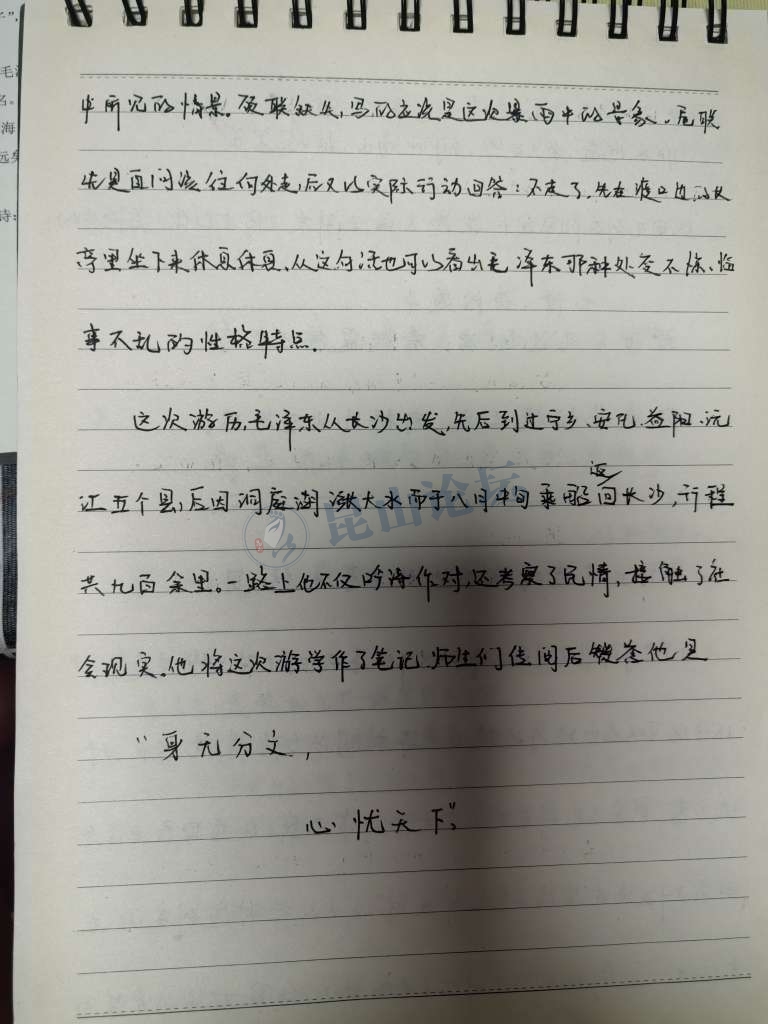 中所见的情景。颈联缺失,写的应该是这次暴雨中的景象。尾联
先是自问该往何处走,后又以实际行动回答:不走了,先在渡口边的长
亭里坐下来休息休息,从这句话也可以看出毛泽东那种处变不惊、临
事不乱的性格特点。
这次游历,毛泽东从长沙出发,先后到过宁乡、安化、益阳、沅
江五个县,后因洞庭湖涨大水而于八月中旬乘船返回长沙,行程
共九百余里。一路上他不仅吟诗作对,还考察了民情,接触了社
会现实。他将这次游学作了笔记,师生们传阅后赞他是
“身无分文,
心忧天下”。
昆山论坛
毛
名。
海
远
诗: